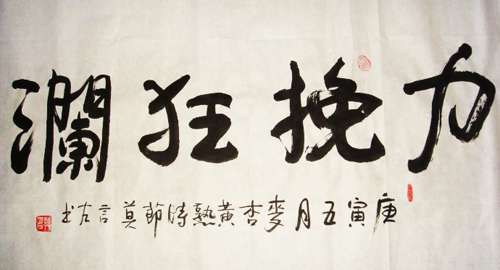 力挽狂瀾
庚寅五月麥杏黃熟時節莫言左书